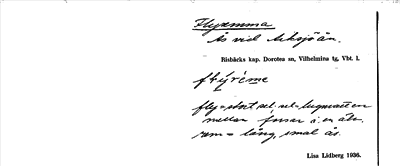 Flyremma
Ås vid Arksjöån.
Risbäcks kap. Dorotea sn, Vilhelmina tg, Vbt. l.
fly = stort sel, sel = lugnvatten
mellan forsar i en älv.
rem = lång, smal ås.
Lisa Lidberg 1936.